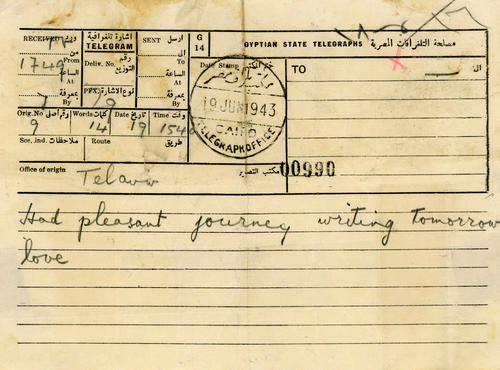 RECEIVED ورد
من
1749
الساعة At
بمعرفة By
7
اشارة تلغرافية
TELEGRAM
Deliv. No. رقم التوزيع
PFX نوع الاشارة
SENT ارسل
To الى
At الساعة
By بمعرفة
G
14
EGYPTIAN STATE TELEGRAPHS مصلحة التلغرافات المصرية
Date Stamp
TO
الى
19 JUN 1943
CAIRO
TELEGRAPH OFFICE
Orig. No رقم اصلى Words كلمات Date تاريخ Time وقت
9 14 19
Sec. ind. ملاحظات Route طريق
Office of origin Telaviv مكتب التصدير 00990
Had pleasant journey writing tomorrow
love